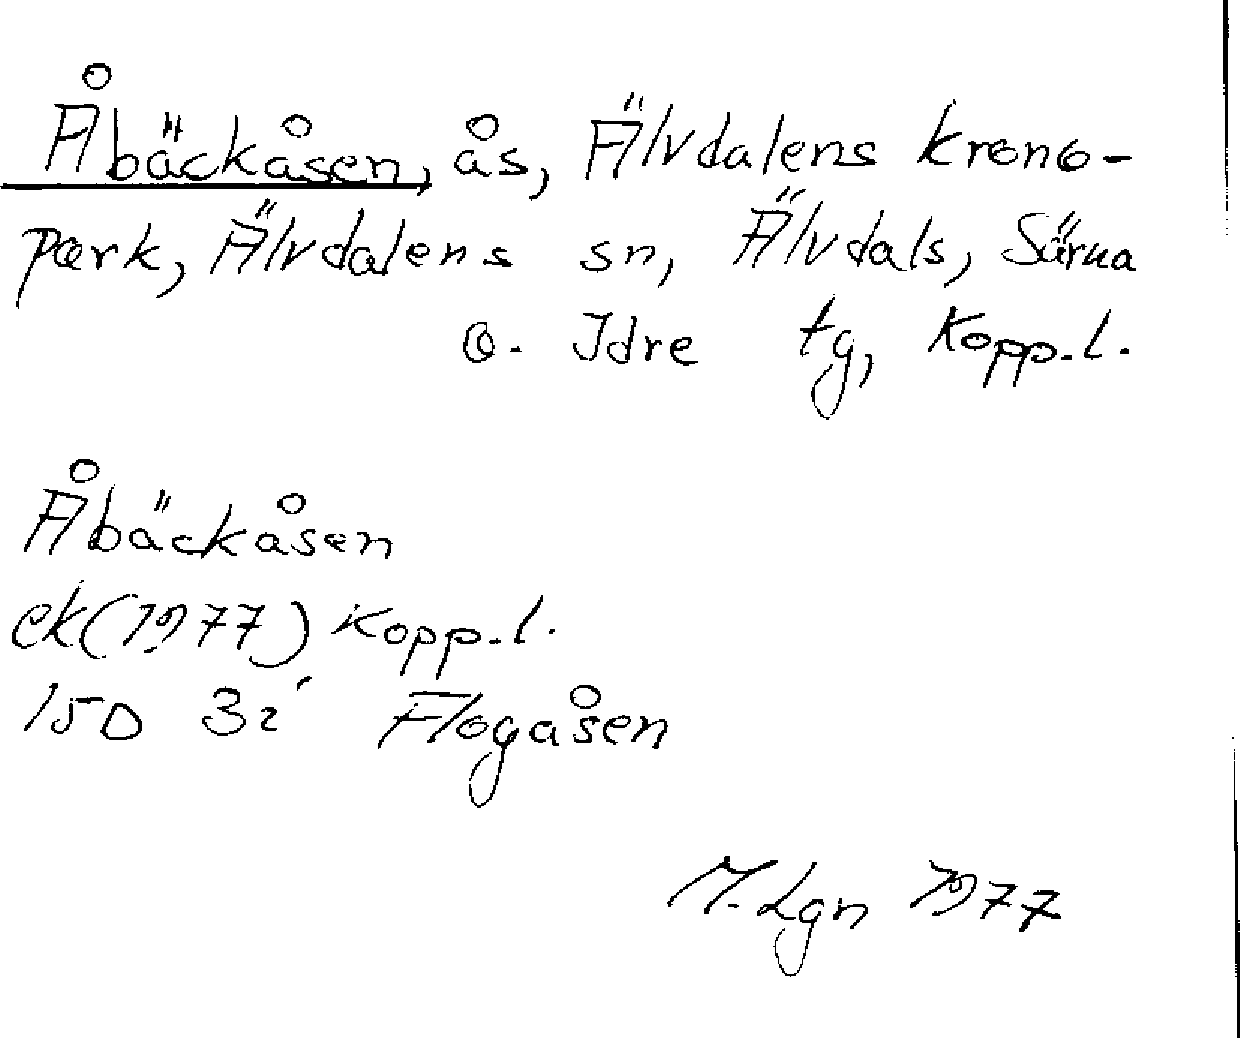 Åbäckåsen, ås, Älvdalens krono-
park, Älvdalens sn, Älvdals, Särna
o. Idre tg, Kopp. l.
Åbäckåsen
ek (1977) Kopp. l.
15D 3i Flogåsen
M. Lgn 1977